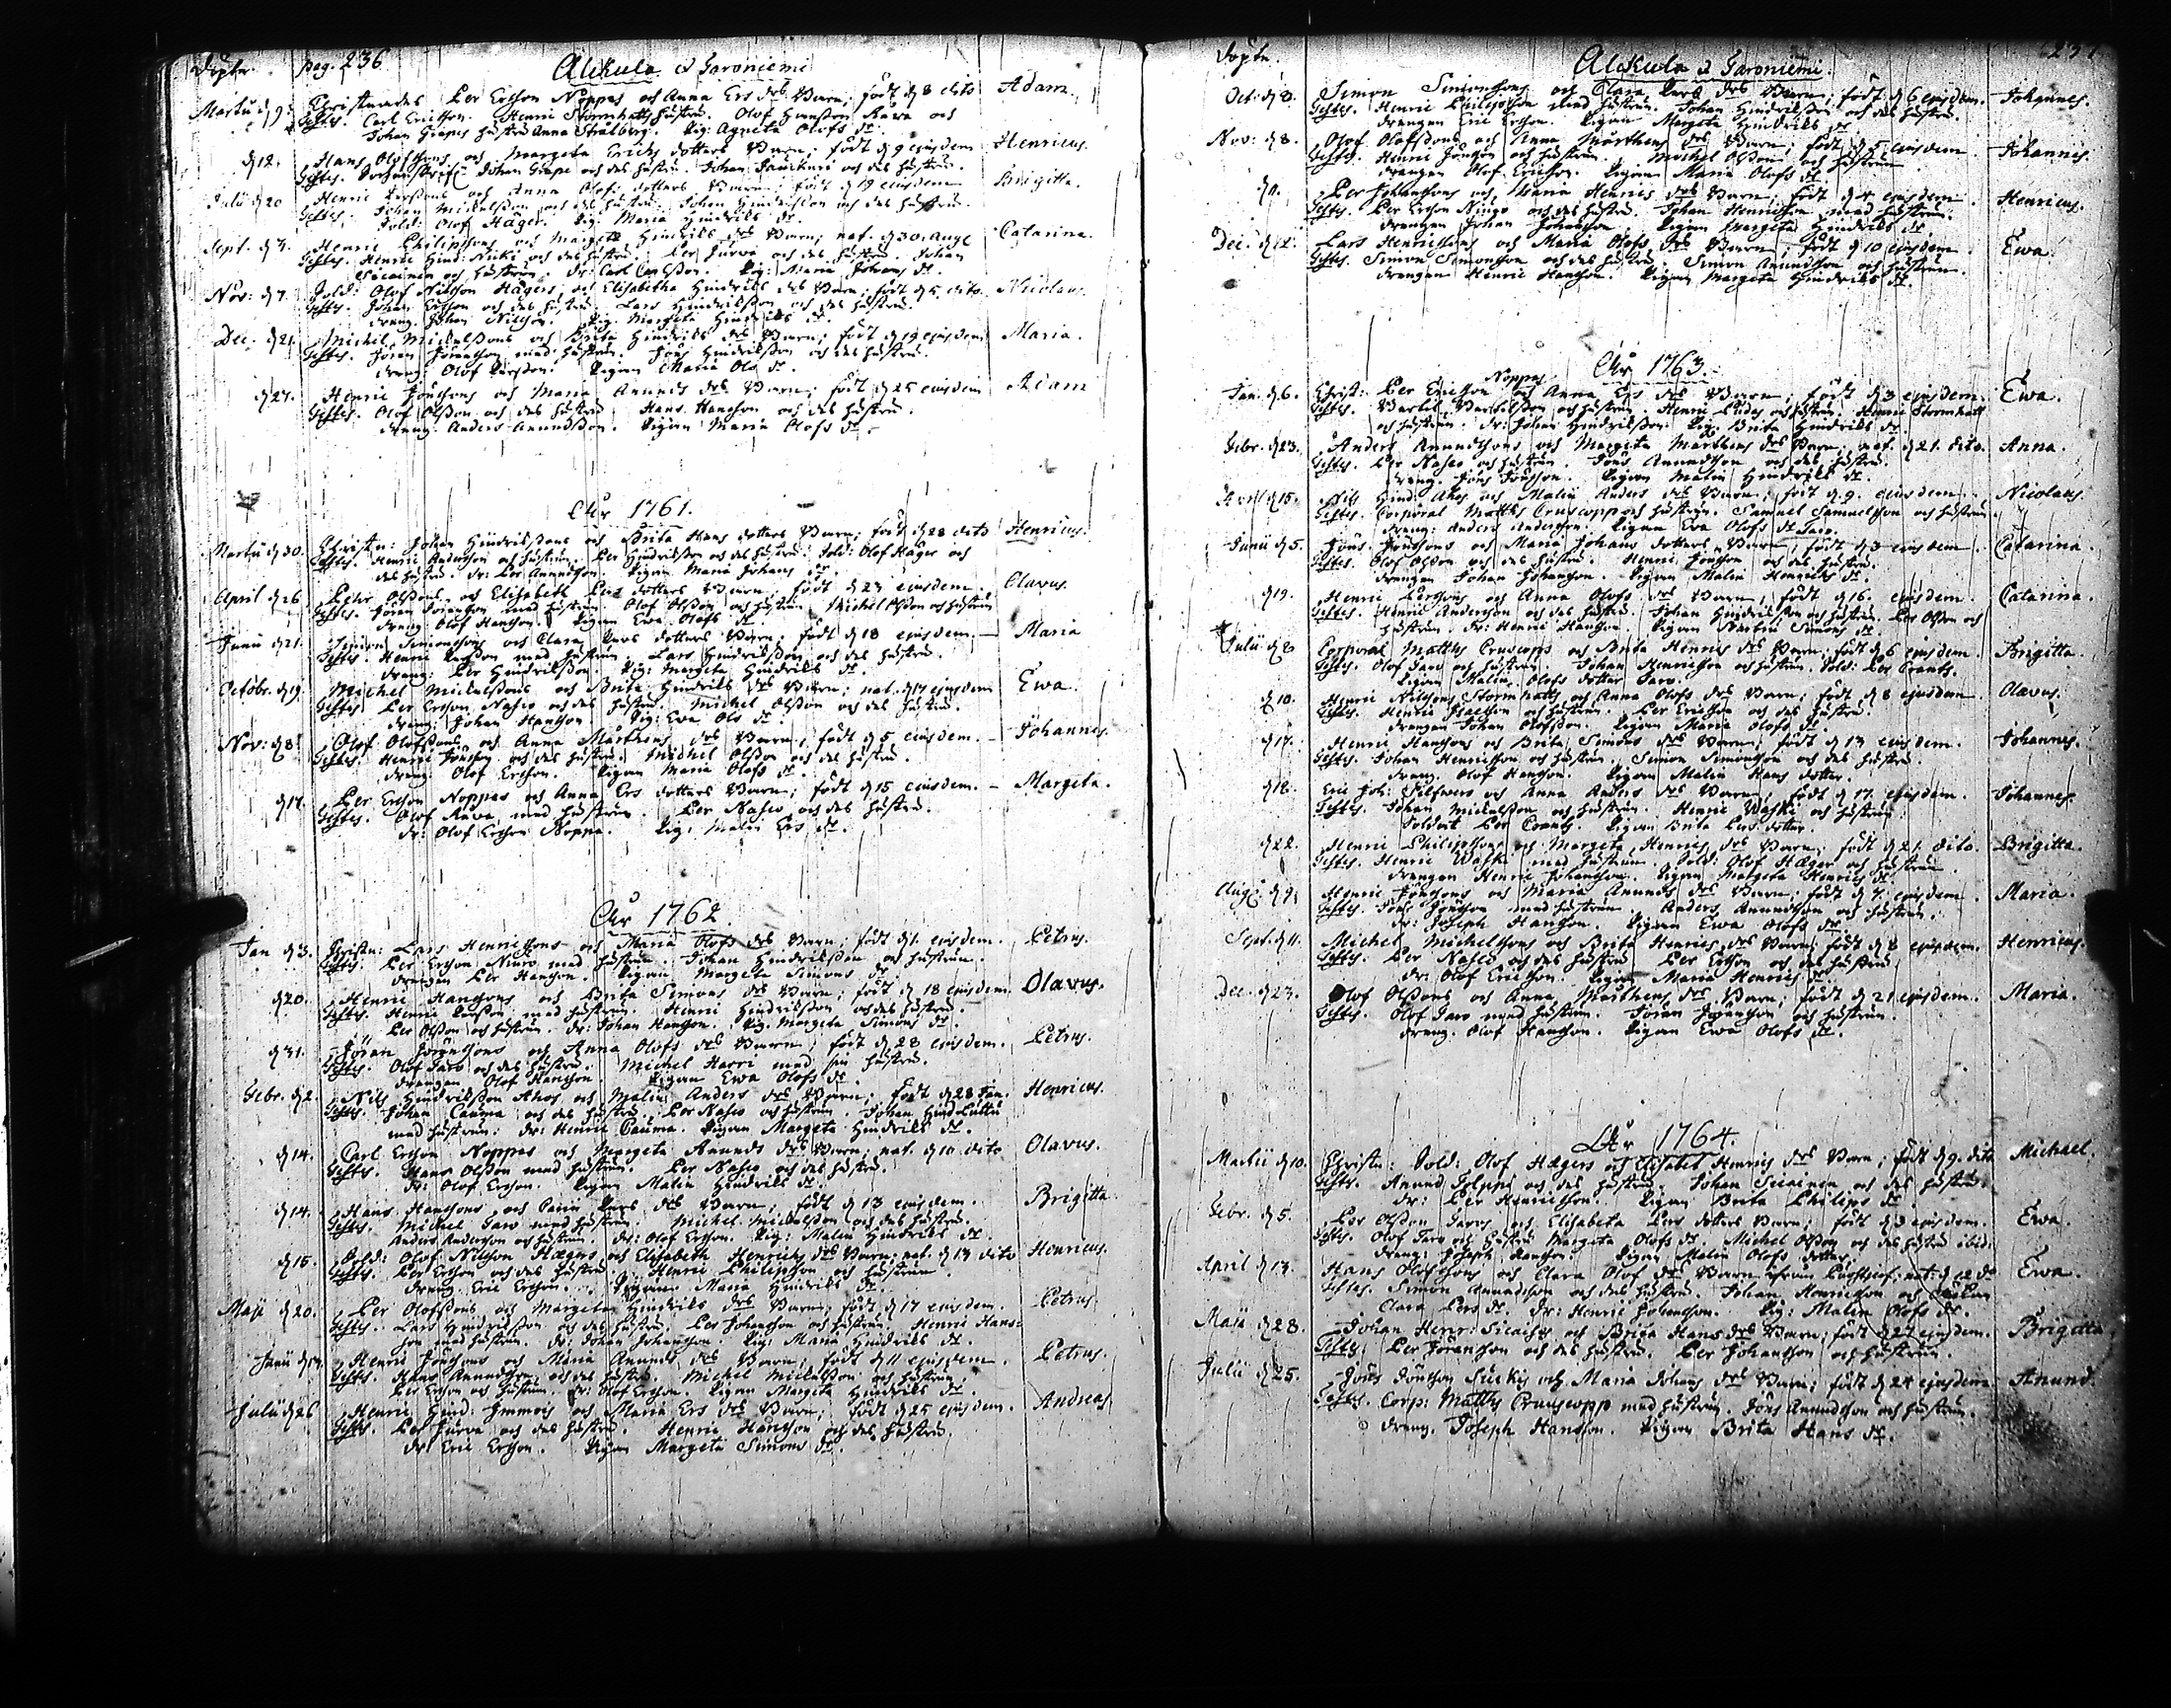 Döpte. pag. 236 Alikula et Jaroniemi
Martii d 9. Christnades Per Ersson Noppas och Anna Ers drs Barn; födt d 8 dito Adam.
Testes. Carl Ericsson. Henric Stormhatts hustru. Olof Hansson Rawa och
Johan Grapes hustru Anna Strålberg. Pig: Agneta Olofs dr.
d 12. Hans Olofssons och Margeta Erichs dotters Barn; födt d 9 ejusdem Henricus.
Testes. Johan Grape och des hustru. Johan och des hustru.
Julii d 20 Henric Perssons och Anna Olofs dotters Barn; födt d 19 ejusdem Brigitta.
Testes. Johan Mickelsson och des hustru. Johan Hindersson och des hustru.
Sold: Olof Häger. Pig: Maria Hindriks dr.
Sept. d 3. Henric Philipssons och Margeta Hindriks drs Barn; nat. d 30 Aug Catarina.
Testes. Henric Hind: och des hustru. Per Furva och des hustru. Johan
Sicainen och hustrun. Dr: Carl Carlsson. Pig: Maria Johans dr.
Nov: d 7. Sold: Olof Nilsson Hägers och Elisabetha Hindriks drs Barn; födt d 5 dito. Nicolaus.
Testes. Johan Ersson och des hustru. Lars Hindriksson och des hustru.
dreng. Johan Nilsson. Pig: Margeta Hindriks dr.
Dec. d 21. Michel Mickelssons och Brita Hindriks drs Barn; födt d 19 ejusdem Maria.
Testes. Jöran Jöransson med hustrun. Jöns Hindriksson och des hustru.
dreng: Olof Persson. Pigan Maria Ols dr.
d 27. Henric Jönssons och Maria Anunds drs Barn; födt d 25 ejusdem Adam
Testes. Olof Olsson och des hustru. Hans Hansson och des hustru.
dreng: Anders Anundsson. Pigan Maria Olofs dr.
Åhr 1761.
Martii d 30. Christn: Johan Hindrikssons och Brita Hans dotters Barn; födt d 28 dito Henricus.
Testes. Henric Andersson och hustrun. Per Hindriksson och des hustru. Sold: Olof Häger och
des hustru. dr: Per Anundsson. Pigan Maria Johans dr.
April d 26 Peter Olssons och Elisabeth Pers dotters Barn; födt d 23 ejusdem Olavus.
Testes. Jöran Jöransson med hustrun. Olof Olsson och hustrun Michel Olsson och hustrun
dreng Olof Hansson. Pigan Ewa Olofs dr.
Junii d 21. Simon Simonssons och Clara Pers dotters Barn. födt d 18 ejusdem. Maria
Testes. Henric Persson med hustrun. Lars Hindriksson och des hustru.
dreng: Per Hindriksson Pig: Margeta Hindriks dr.
Octobr. d 19. Michel Mickelssons och Brita Hindriks drs Barn; nat. d 17 ejusdem Ewa.
Testes. Per Ersson Nasso och des hustru. Michel Olsson och des hustru.
dreng: Johan Hansson Pig: Ewa Ols dr.
Nov: d 8. Olof Olofssons och Anna Mårthens drs Barn; födt d 5 ejusdem. Johannes.
Testes. Henric Jönsson och des hustru. Michel Olsson och des hustru.
dreng: Olof Ersson. Pigan Maria Olofs dr.
d 17. Per Ersson Noppas och Anna Ers dotters Barn; födt d 15 ejusdem. Margeta.
Testes. Olof Rawa med hustrun. Per Nasso och des hustru.
dr: Olof Ersson Noppa. Pig: Malin Ers dr.
Åhr 1762.
Jan d 3. Christn: Lars Henricssons och Maria Olofs drs Barn; födt d 1. ejusdem. Petrus.
Testes. Per Ersson Niuro med hustrun. Johan Hindriksson och hustrun.
drengen Per Hansson. Pigan Margeta Simons dr.
d 20. Henric Hanssons och Brita Simons drs Barn; födt d 18 ejusdem. Olavus.
Testes. Henric Persson med hustrun. Henric Hindriksson och des hustru.
Per Olsson och hustrun. dr. Johan Hansson. Pig: Margeta Simons dr.
d 31. Jöran Jöranssons och Anna Olofs drs Barn; födt d 28 ejusdem. Petrus.
Testes. Olof Jaro och des hustru. Michel Harri med sin hustru.
drengen Olof Hansson. Pigan Ewa Olofs dr.
Febr. d 2. Nils Hindriksson Ahos och Malin Anders drs Barn; födt d 28 Jan. Henricus.
Testes. Johan Cauma och des hustru. Per Nasso och hustrun. Johan Hind: Luttu
med hustrun: dr: Henric Cauma. Pigan Margeta Hindriks dr.
d 14. Carl Ersson Noppas och Margeta Anunds drs Barn; nat. d 10 dito Olavus.
Testes. Hans Olsson med hustrun. Per Nasso och des hustru.
dr: Olof Ersson. Pigan Malin Hindriks dr.
d 14. Hans Hanssons och Carin Pers drs Barn; födt d 13 ejusdem. Brigitta
Testes. Michel Jaro med hustrun. Michel Mickelsson och des hustru.
Anders Andersson och hustrun. dr: Olof Ersson. Pig: Malin Hindriks dr.
d 15. Sold: Olof Nilsson Hægers och Elisabeth Henrichs drs Barn: nat. d 13 dito Henricus.
Testes. Per Ersson och des hustru. Henric Philipsson och hustrun.
dreng. Eric Ersson. Pigan Maria Hindriks dr.
Maji d 20. Per Olofssons och Margeta Hindriks drs Barn; födt d 17 ejusdem. Petrus.
Testes. Lars Hindriksson och des hustru. Per Johansson och hustrun. Henric Hans-
son med hustrun. dr: Johan Johansson. Pig: Maria Hindriks dr.
Junii d 14. Henric Jönssons och Maria Anunds drs Barn; födt d 11 ejusdem. Petrus.
Testes. Hans Anundsson och des hustru. Michel Mickelsson och hustrun;
Per Ersson och hustrun. dr: Olof Ersson. Pigan Margeta Hindriks dr.
Julii d 26 Henric Hind: Immois och Maria Ers drs Barn; födt d 25 ejusdem. Andreas
Testes. Per Furva och des hustru. Henric Hansson och des hustru.
dr: Eric Ersson. Pigan Margeta Simons dr.
Döpte. Alikula et Jaroniemi. 237
Oct: d 8. Simon Simonssons och Clara Pers drs Barn; födt d 6 ejusdem. Johannes.
Testes. Henric Philipsson med hustrun. Johan Hindriksson och des hustru.
drengen Eric Ersson. Pigan Margeta Hindriks dr.
Nov: d 8. Olof Olofssons och Anna Mårthens drs Barn; födt d 5 ejusdem. Johannes.
Testes. Henric Jönsson och hustrun. Michel Olsson och hustrun
drengen Olof Ericsson. Pigan Maria Olofs dr.
d 9. Per Johanssons och Maria Henrics drs Barn; födt d 4 ejusdem. Henricus.
Testes. Per Ersson Niugo och des hustru. Johan Henricsson med hustrun.
drengen Johan Johansson. Pigan Margeta Hindriks dr.
Dec. d 12. Lars Henricssons och Maria Olofs drs Barn; födt d 10 ejusdem. Ewa.
Testes. Simon Simonsson och des hustru. Simon Anundsson och hustrun.
drengen Henric Hansson. Pigan Margeta Hindriks dr.
Åhr 1763.
Noppas
Jan. d 6. Christ: Per Ericsson och Anna Ers drs Barn; födt d 3 ejusdem. Ewa.
Testes. Bartil Bartilsson och hustrun. Henric och hustrun. Henric Stormhatt
och hustrun. dr: Johan Hindriksson. Pig: Brita Hindriks dr.
Febr. d 23. Anders Anundssons och Margeta Marthens drs Barn; nat. d 21. dito. Anna.
Testes. Per Nasso och hustrun. Jöns Anundsson och des hustru.
dreng. Jöns Jönsson. Pigan Malin Hindriks dr.
April d 15. Nils Hind: Ahos och Malin Anders drs Barn; födt d 9. ejusdem. Nicolaus.
Testes. Corporal Matths Cruscopp och hustrun. Samuel Samuelsson och hustrun
dreng: Anders Andersson. Pigan Ewa Olofs dr Jaro.
Junii d 5. Jöns Jönssons och Maria Johans dotters Barn; födt d 3 ejusdem. Catarina.
Testes. Olof Olsson och des hustru. Henric Jönsson och des hustru.
drengen Johan Johansson. Pigan Malin Henrichs dr.
d 19. Henric Perssons och Anna Olofs drs Barn; födt d 16. ejusdem. Catarina.
Testes. Henric Andersson och des hustru. Johan Hindriksson och hustrun. Per Olsson och
hustrun. dr: Henric Hansson. Pigan Simons dr.
Julii d 8 Corporal Matths Cruscopps och Brita Henrics drs Barn: födt d 6 ejusdem. Brigitta.
Testes. Olof Jaro och hustrun. Johan Henricsson och hustrun. Sold: Per Crantz.
Pigan Malin Olofs dotter Jaro.
d 10. Henric Nilssons Stormhatts och Anna Olofs drs Barn; födt d 8 ejusdem. Olavus.
Testes. Henric Isacsson och hustrun. Per Ericsson och des hustru.
drengen Johan Olofsson. Pigan Maria Olofs dr.
d 17. Henric Hanssons och Brita Simons drs Barn; födt d 13 ejusdem. Johannes.
Testes. Johan Henricsson och hustrun. Simon Simonsson och des hustru.
dreng. Olof Hansson. Pigan Malin Hans dotter.
d 18. Eric Joh: Silfwers och Anna Anders drs Barn; födt d 17. ejusdem. Johannes.
Testes. Johan Mickelsson och hustrun. Henric Waski och hustrun.
Soldat Per Crantz. Pigan Brita Pers dotter.
d 22. Henric Philipssons och Margeta Henrics drs Barn; födt d 21. dito. Brigitta.
Testes. Henric Waski med hustrun. Sold: Olof Hæger och hustrun
drengen Henric Johansson. Pigan Margeta Henrics dr.
Aug. d 9. Henric Jönssons och Maria Anunds drs Barn; födt d 7. ejusdem. Maria.
Testes. Jöns Jönsson med hustrun Anders Anundsson och hustrun.
dr: Joseph Hansson. Pigan Ewa Olofs dr.
Sept. d 11. Michel Michelssons och Brita Henrics drs Barn; födt d 8 ejusdem. Henricus.
Testes. Per Nasso och des hustru Per Ersson och des hustru
dr: Olof Ericsson. Pigan Maria Henrics dr.
Dec. d 23. Olof Olssons och Anna Marthens drs Barn; födt d 21 ejusdem. Maria.
Testes. Olof Jaro med hustrun. Jöran Jöransson och hustrun.
dreng. Olof Hansson. Pigan Ewa Olofs dr.
Åhr 1764.
Martii d 10. Christn: Sold. Olof Hægers och Elisabet Henrics drs Barn; födt d 9. dito Michael.
Testes. Anund och des hustru. Johan Sicainen och des hustru.
dr: Per Henricsson. Pigan Brita Philips dr.
Febr. d 5. Per Olsson Jaros och Elisabeta Pers dotters Barn; födt d 3 ejusdem. Ewa.
Testes. Olof Jaro och hustru Margeta Olofs dr. Michel Olsson och des hustru ibid:
dreng: Joseph Hansson. Pigan Malin Olofs dotter.
April d 13. Hans Olofssons och Clara Olof drs Barn ifrån nat: d 12 do Ewa.
Testes. Simon Anundsson och des hustru. Johan Henricsson och
Clara Pers dr. dr: Henric Johansson. Pig: Malin Olofs dr.
Maji d 28. Johan Henr: Sicaises och Brita Hans drs Barn; födt d 27 ejusdem. Brigitta.
Testes: Per Jöransson och des hustru. Per Johansson och hustrun.
Julii d 25. Jöns Jönsson Suckis och Maria Johans drs Barn; födt d 24 ejusdem Anund.
Testes. Corp: Matths Cruuscopp med hustrun. Jöns Anundsson och hustrun.
dreng. Joseph Hansson. Pigan Brita Hans dr.